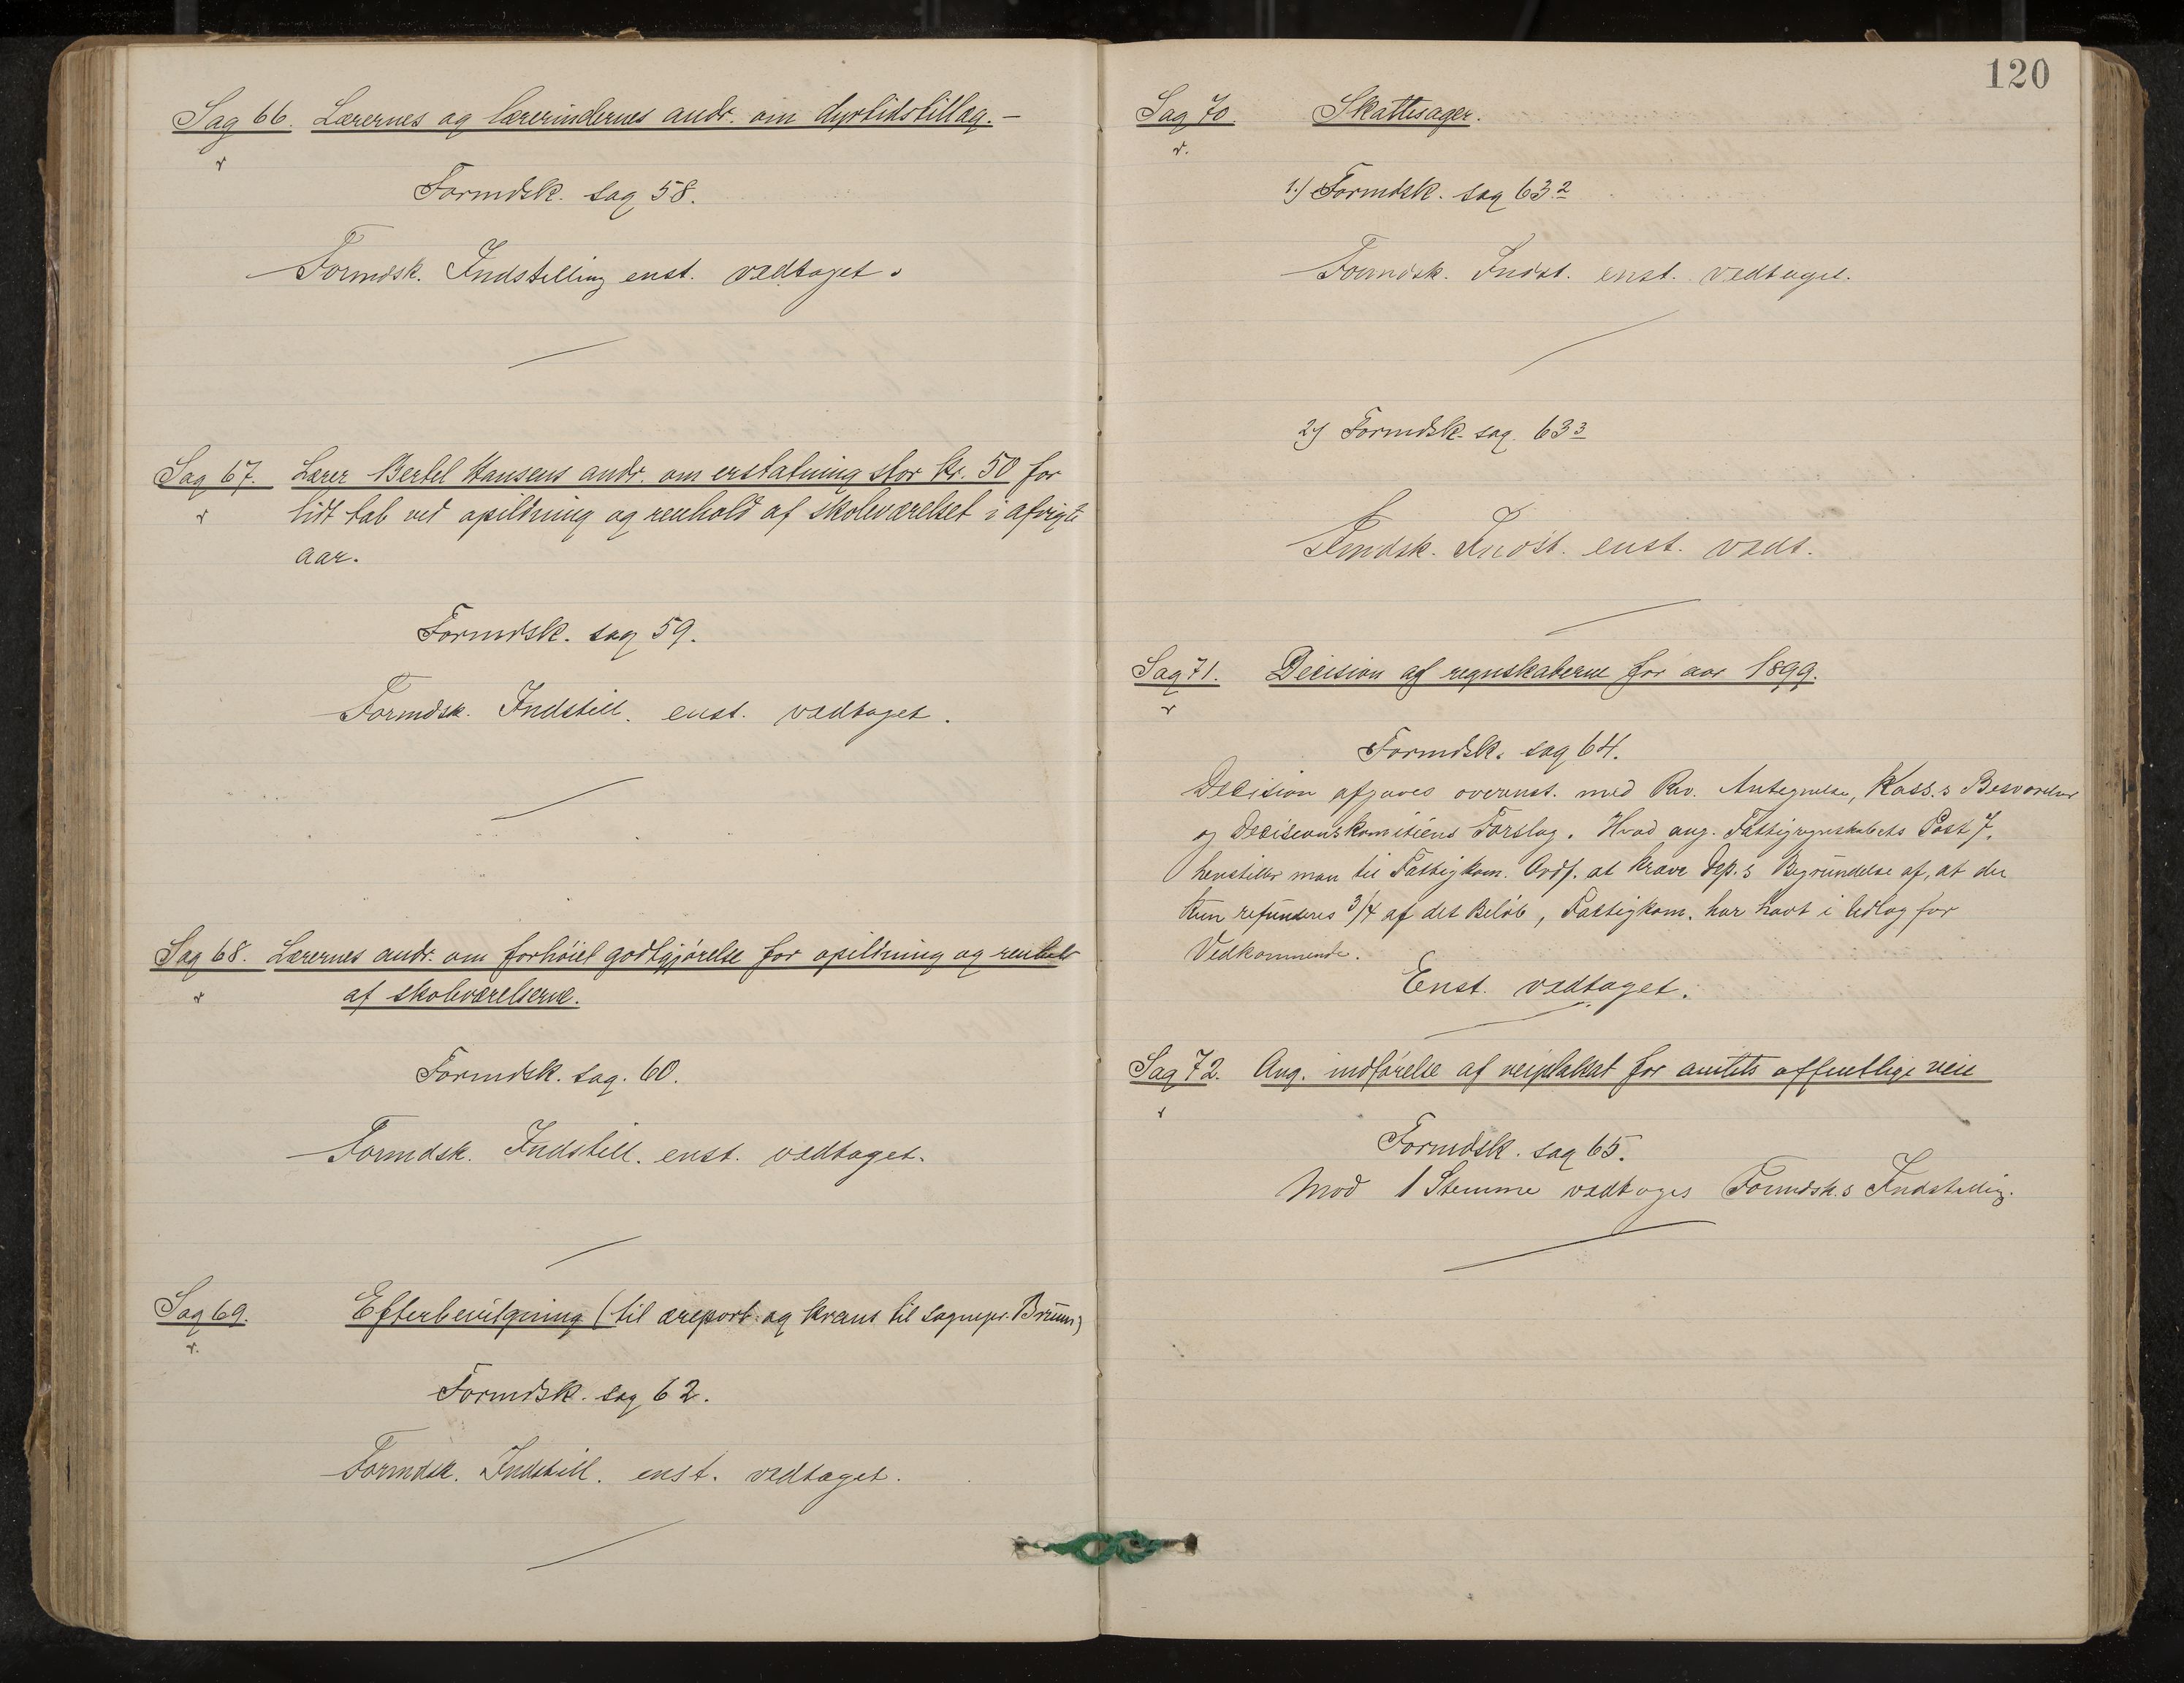 Sag 66. Lærernes og lærerindernes andr. om dyrtidstillæg. —
Formdsk. sag 58.
Formdsk. Indstilling enst. vedtaget.
Sag 67. Lærer Bertel Hansens andr. om erstatning stor kr. 50 for
lidt tab ved opildning og renhold af skoleværelset i afvigte
aar.
Formdsk. sag 59.
Formdsk. Indstill. enst. vedtaget.
Sag 68. Lærernes andr. om forhøiet godtgjørelse for opildning og renhold
af skoleværelserne.
Formdsk. sag. 60.
Formdsk. Indstill. enst. vedtaget.
Sag 69. Efterbevilgning (til æreport og krans til sognepr. Bruun)
Formdsk. sag 62.
Formdsk. Indstill. enst. vedtaget.
120
Sag 70. Skattesager.
1.) Formdsk. sag 63 2
Formdsk. Indst. enst. vedtaget.
2) Formdsk. sag. 63 3
Fmdsk. Indst. enst. vedt.
Sag 71. Decision af regnskaberne for aar 1899.
Formdsk. sag 64.
Decision afgaves overenst. med Rev. Antegnelse, Kass.s Besvarelse
og Decisionskomitéens Forslag. Hvad ang. Fattigregnskabets Post 7,
henstiller man til Fattigkom. Ordf. at kræve Dep.s Begrundelse af, at der
kun refunderes 3/4 af det Beløb, Fattigkom. har havt i Udlæg for
Vedkommende.
Enst. vedtaget.
Sag 72. Ang. indførelse af veiplakat for amtets offentlige veie
Formdsk. sag 65.
Mod 1 Stemme vedtoges Formdsk.s Indstilling.